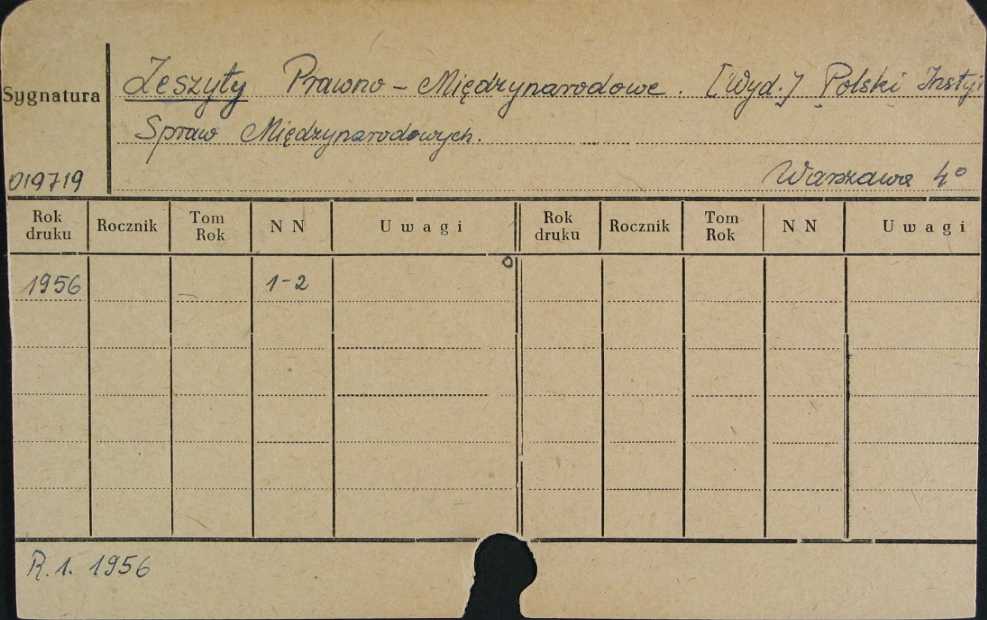 Zeszyty Prawno-Międzynarodowe. [Wyd.] Polski Insty
Sygnatura
Spraw Międzynarodowych.
019719
Warszawa 4°
Rok druku Rocznik Tom Rok N N Uwagi Rok druku Rocznik Tom Rok N N Uwagi
1956 1-2
R. 1. 1956